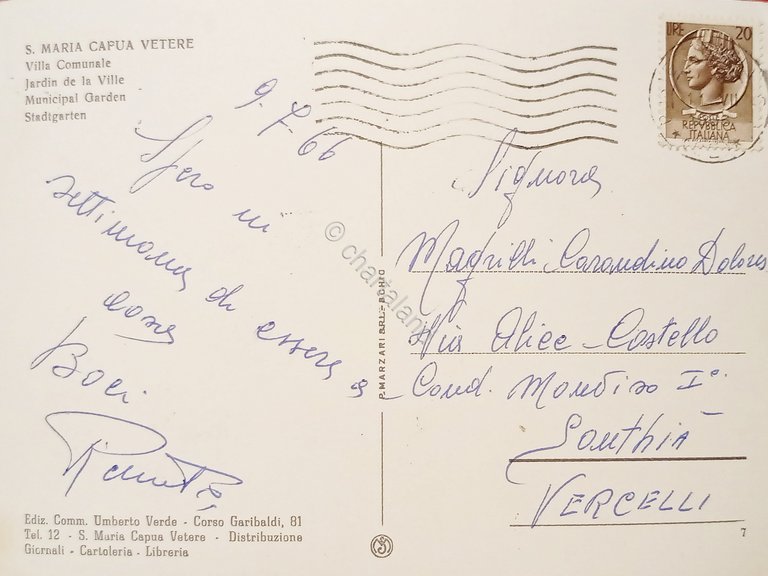 S. MARIA CAPUA VETERE
Villa Comunale
Jardin de la Ville
Municipal Garden
Stadtgarten
9-7-66
Spero in
settimana di essere a
casa
Baci
LIRE 20
REPUBBLICA
ITALIANA
Signora
Magrilli Carandino Dolores
Via Alice-Castello
Cond. Mondiso I°
Santhià
VERCELLI
P. MARZARI S.R.L. - SCHIO
© chartaland
Ediz. Comm. Umberto Verde - Corso Garibaldi, 81
Tel. 12 - S. Maria Capua Vetere - Distribuzione
Giornali - Cartoleria - Libreria
7